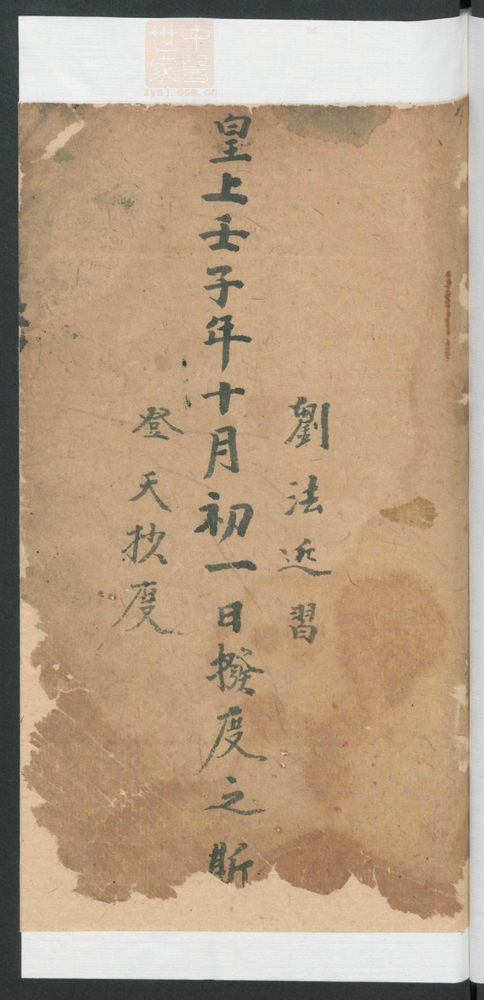 中醫世家
zysj.com.cn
劉法近習
皇上壬子年十月初一日撥度之
登天抄度